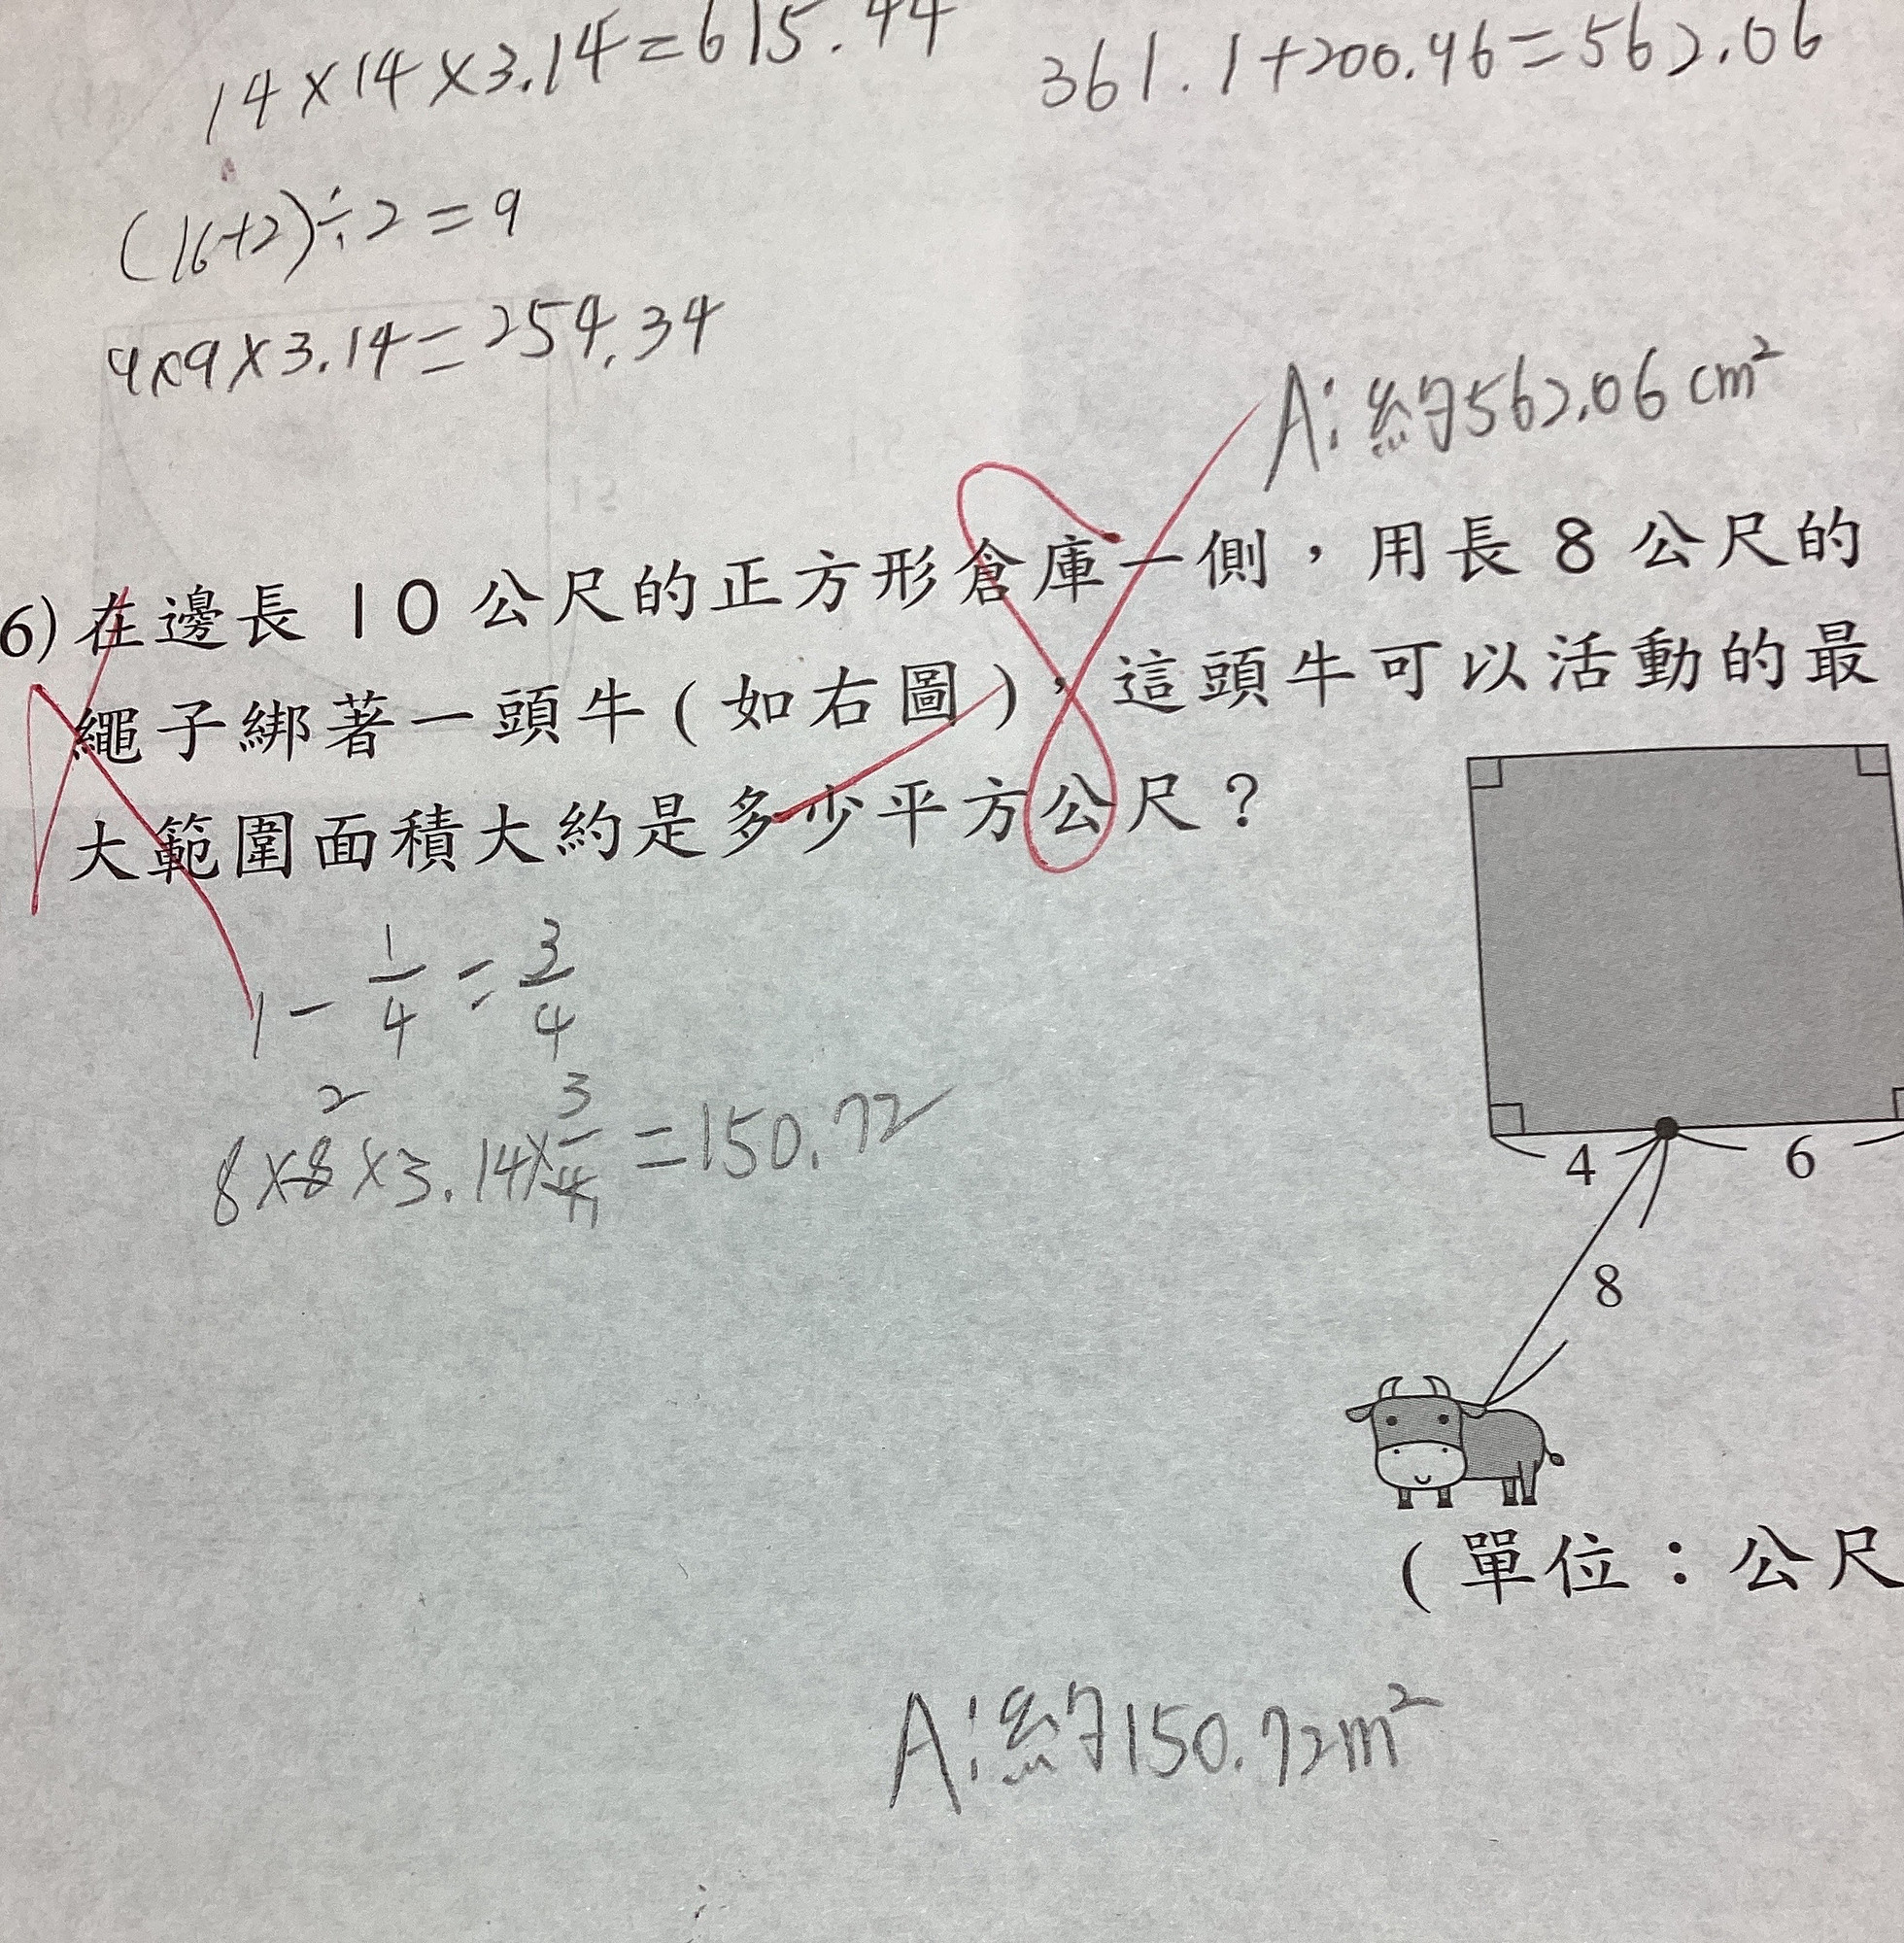 14×14×3.14=615.44
361.1+200.96=562.06
(16+2)÷2=9
9×9×3.14=254.34
A:約562.06cm²
6)在邊長10公尺的正方形倉庫一側,用長8公尺的
繩子綁著一頭牛(如右圖),這頭牛可以活動的最
大範圍面積大約是多少平方公尺?
1-1/4=3/4
2
8×8×3.14×3/4=150.72
1
4
6
8
(單位:公尺
A:約150.72m²